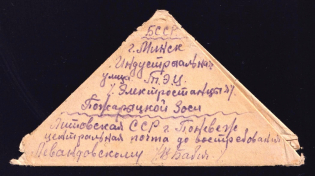 БССР
г. Минск
Индустриальная
улица Т.Э.Ц.
Электростанция
Зоси
Литовская ССР г. Поневеж
центральная почта до востребования
Левандовскому